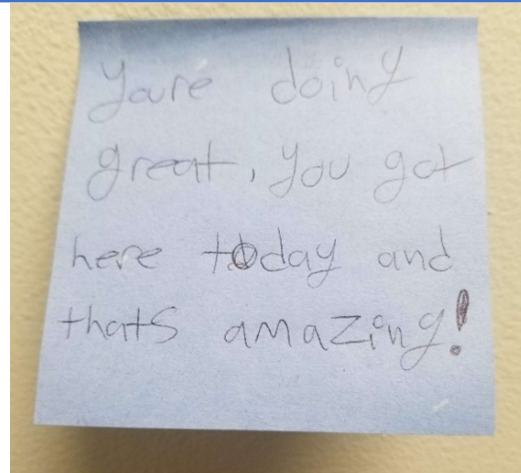 Youre doing
great, you got
here today and
thats amazing!